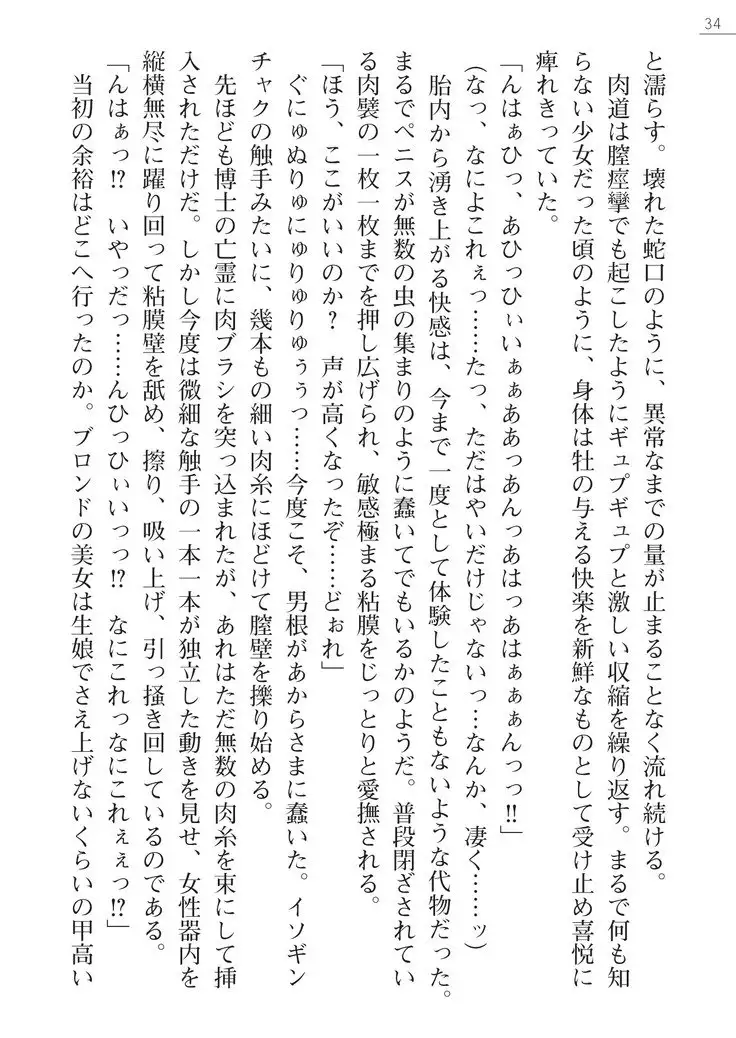 34
と濡らす。壊れた蛇口のように、異常なまでの量が止まることなく流れ続ける。
　肉道は膣痙攣でも起こしたようにギュプギュプと激しい収縮を繰り返す。まるで何も知
らない少女だった頃のように、身体は牡の与える快楽を新鮮なものとして受け止め喜悦に
痺れきっていた。
「んはぁひっ、あひっひぃいぁぁああっあんっあはっあはぁぁぁんっっ!!」
（なっ、なによこれぇっ……たっ、ただはやいだけじゃないっ…なんか、凄く……ッ）
　胎内から湧き上がる快感は、今まで一度として体験したこともないような代物だった。
まるでペニスが無数の虫の集まりのように蠢いてでもいるかのようだ。普段閉ざされてい
る肉襞の一枚一枚までを押し広げられ、敏感極まる粘膜をじっとりと愛撫される。
「ほう、ここがいいのか？　声が高くなったぞ……どぉれ」
　ぐにゅぬりゅにゅりゅりゅぅぅっ……今度こそ、男根があからさまに蠢いた。イソギン
チャクの触手みたいに、幾本もの細い肉糸にほどけて膣壁を擽り始める。
　先ほども博士の亡霊に肉ブラシを突っ込まれたが、あれはただ無数の肉糸を束にして挿
入されただけだ。しかし今度は微細な触手の一本一本が独立した動きを見せ、女性器内を
縦横無尽に躍り回って粘膜壁を舐め、擦り、吸い上げ、引っ掻き回しているのである。
「んはぁっ!?　いやっだっ……んひっひぃいっっ!?　なにこれっなにこれぇぇっ!?」
　当初の余裕はどこへ行ったのか。ブロンドの美女は生娘でさえ上げないくらいの甲高い